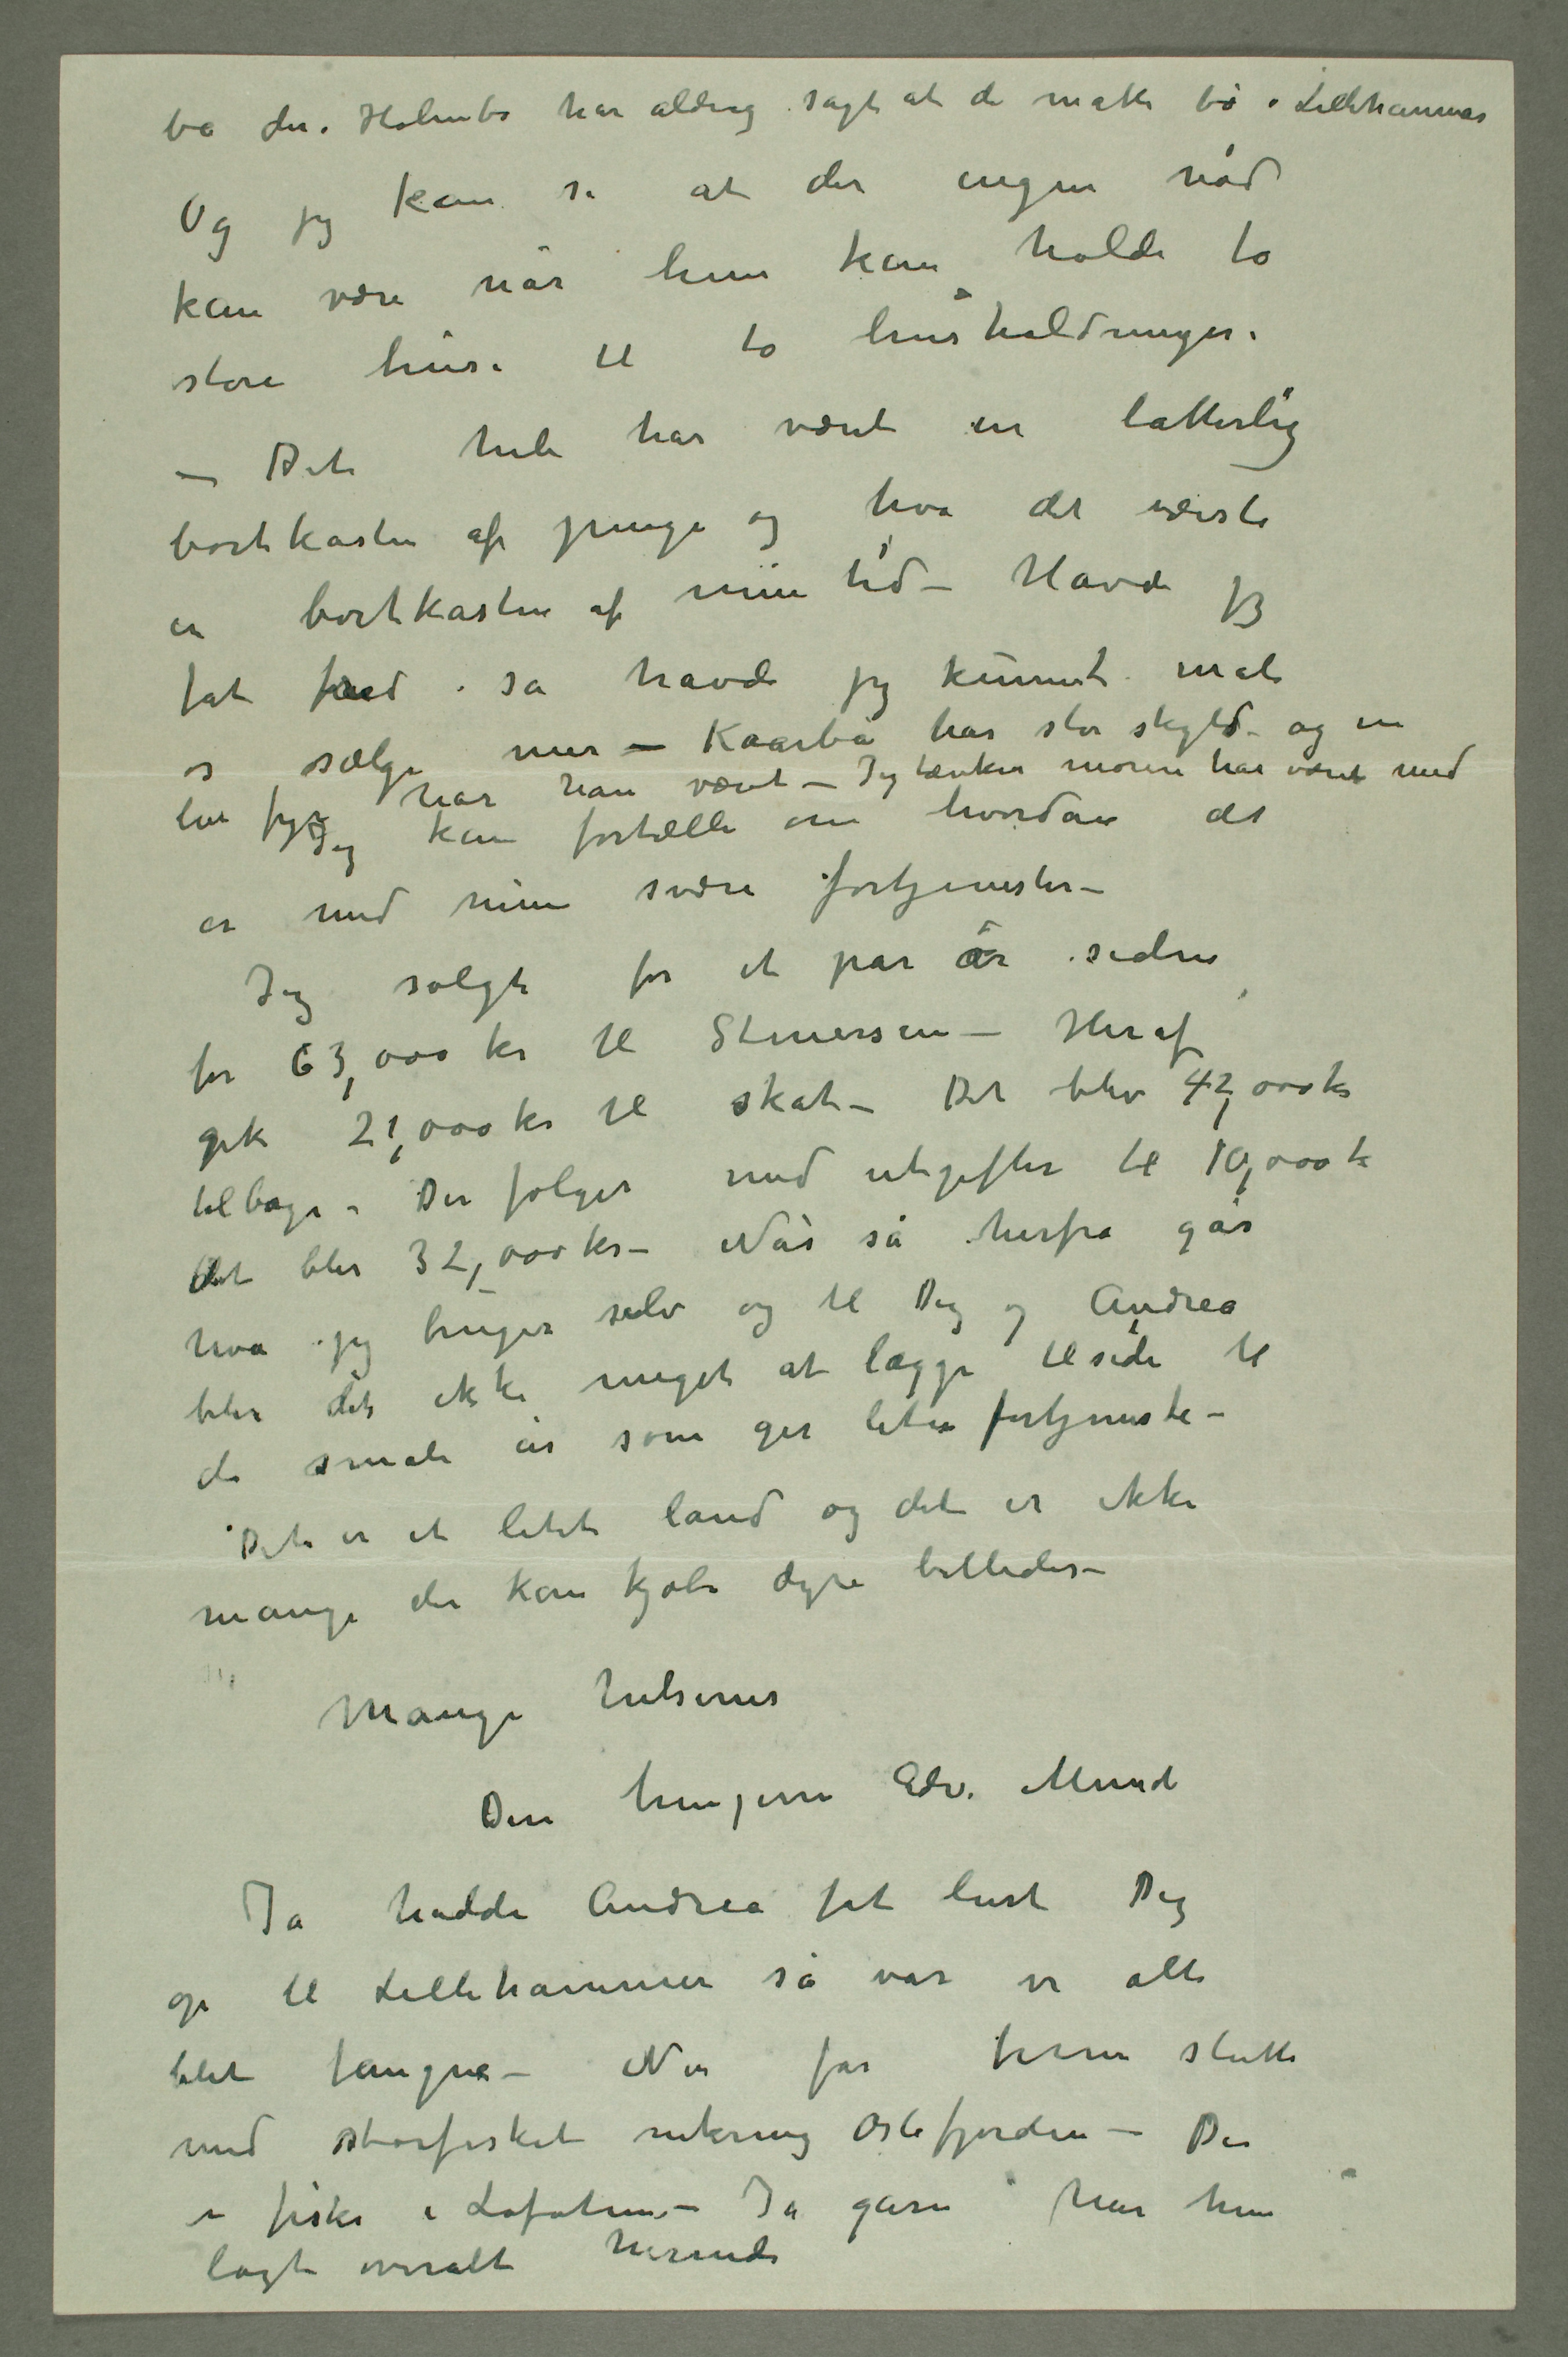 bo der. Holmbo har aldrig sagt at de måtte bo i Lillehammer
Og jeg kan se at der ingen nød
kan være når hun kan holde to
store huse til to husholdninger.
– Det hele har været en latterlig
bortkasten af penge og hva det værste
er bortkasten af min tid – Havde jeg
fåt fred så havde jeg kunnet male
og sælge mer – Kaarbø har stor skyld og en
har han været – Jeg tænker moren har været med
Jeg kan fortælle om hvordan det
er med mine svære fortjenester –
Jeg solgte for et par år siden
for 63,000 kr til Stenersen – Heraf
gik 21,000 kr til skat – Det blev 42,000 kr
tilbage – Der følger med utgifter til 10,000 k
Det blir 32,000 kr – Når så herfra går
hva jeg bruger selv og til Dig og Andrea
blir det ikke meget at lægge tilside til
de smale år som gir liten fortjeneste –
Det er et litet land og det er ikke
mange der kan kjøbe dyre billeder –
Mange hilsener
Din hengivne Edv. Munch
Ja hadde Andrea fåt lurt Dig
op til Lillehammer så var vi alle
blet fangne – Nu får slutte
med storfisket omkring Oslofjorden – Der
er fiske i Lofoten – Ja garn har hun
lagt overalt herinde